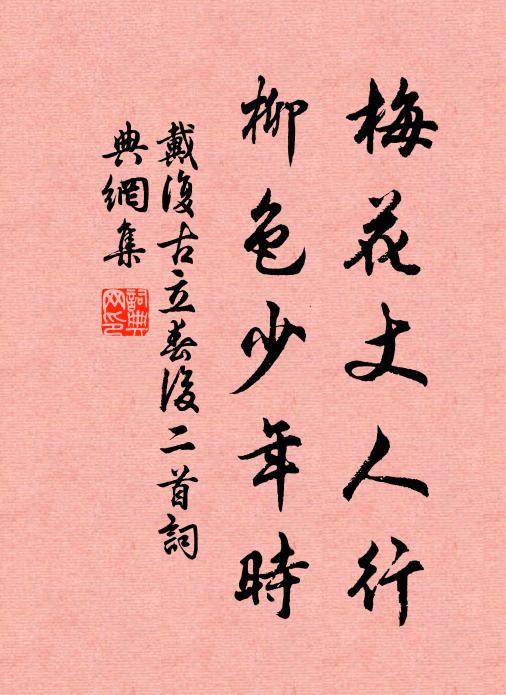 梅花丈人行
柳色少年時
戴復古立春後二首詞
典網集
詞典網印